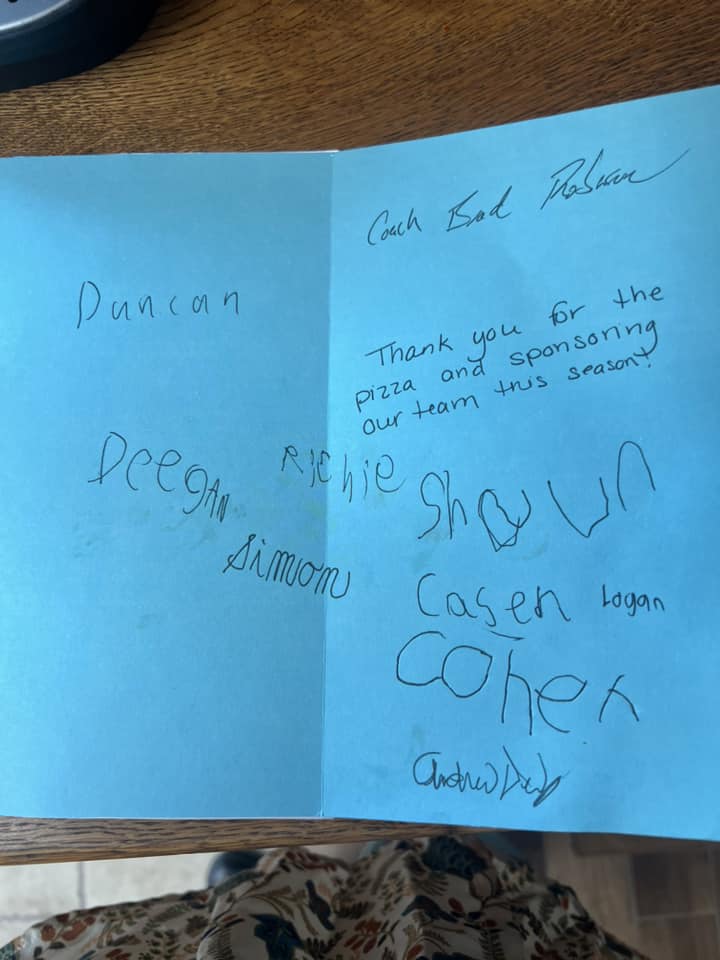 Coach Brad
Thank you for the
pizza and sponsoring
our team this season!
Duncan
Deegan
Richie
Simon
Shawn
Casen Logan
Cohen
Andrew